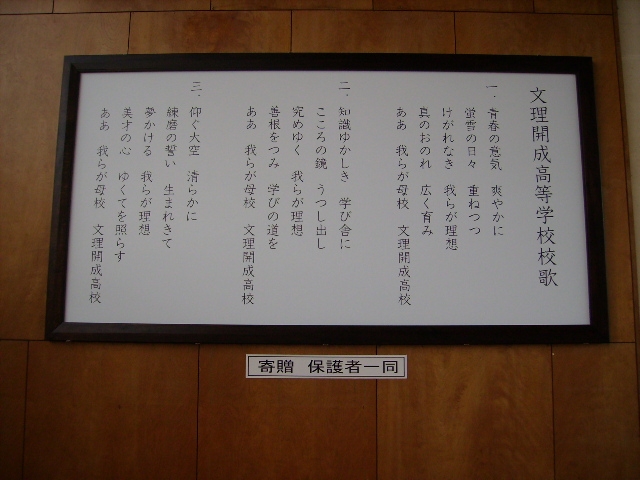 文理開成高等学校校歌
一．青春の意気　爽やかに
蛍雪の日々　重ねつつ
けがれなき　我らが理想
真のおのれ　広く育み
ああ　我らが母校　文理開成高校
二．知識ゆかしき　学び舎に
こころの鏡　うつし出し
究めゆく　我らが理想
善根をつみ　学びの道を
ああ　我らが母校　文理開成高校
三．仰ぐ大空　清らかに
練磨の誓い　生まれきて
夢かける　我らが理想
美才の心　ゆくてを照らす
ああ　我らが母校　文理開成高校
寄贈　保護者一同